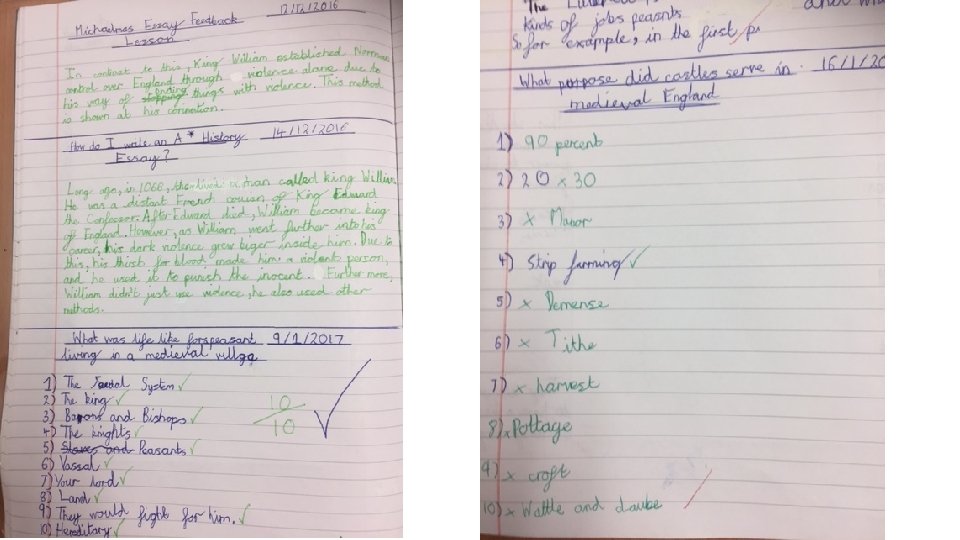 Michaelmas Essay Feedback 12/12/2016
Lesson
In contrast to this, King William established Norman
control over England through violence alone due to
his way of stopping things with violence. This method
is shown at his corination.
How do I write an A* History 14/12/2016
Essay?
Long ago, in 1066, there lived a man called king William.
He was a distant French cousin of King Edward
the Confessor. After Edward died, William became king
of England. However, as William went further into his
career, his dark violence grew biger inside him. Due to
this, his thirst for blood, made him a violent person,
and he used it to punish the inocent. Further more,
William didn't just use violence, he also used other
methods.
What was life like for peasant 9/1/2017
living in a medieval village
1) The Feudal System ✓
2) The king ✓
3) Barons and Bishops ✓
4) The knights ✓
5) Slaves and Peasants ✓
6) Vassal ✓
7) Your Lord ✓
8) Land ✓
9) They would fight for him. ✓
10) Hereditary ✓
10
10
The
Kinds of jobs peasnts
So for example, in the first
What porpose did castles serve in 16/1/20
medieval England
1) 90 percent
2) 20 x 30
3) x Manor
4) Strip farming ✓
5) x Demense
6) x Tithe
7) x harvest
8) x Pottage
9) x croft
10) x Wattle and daube